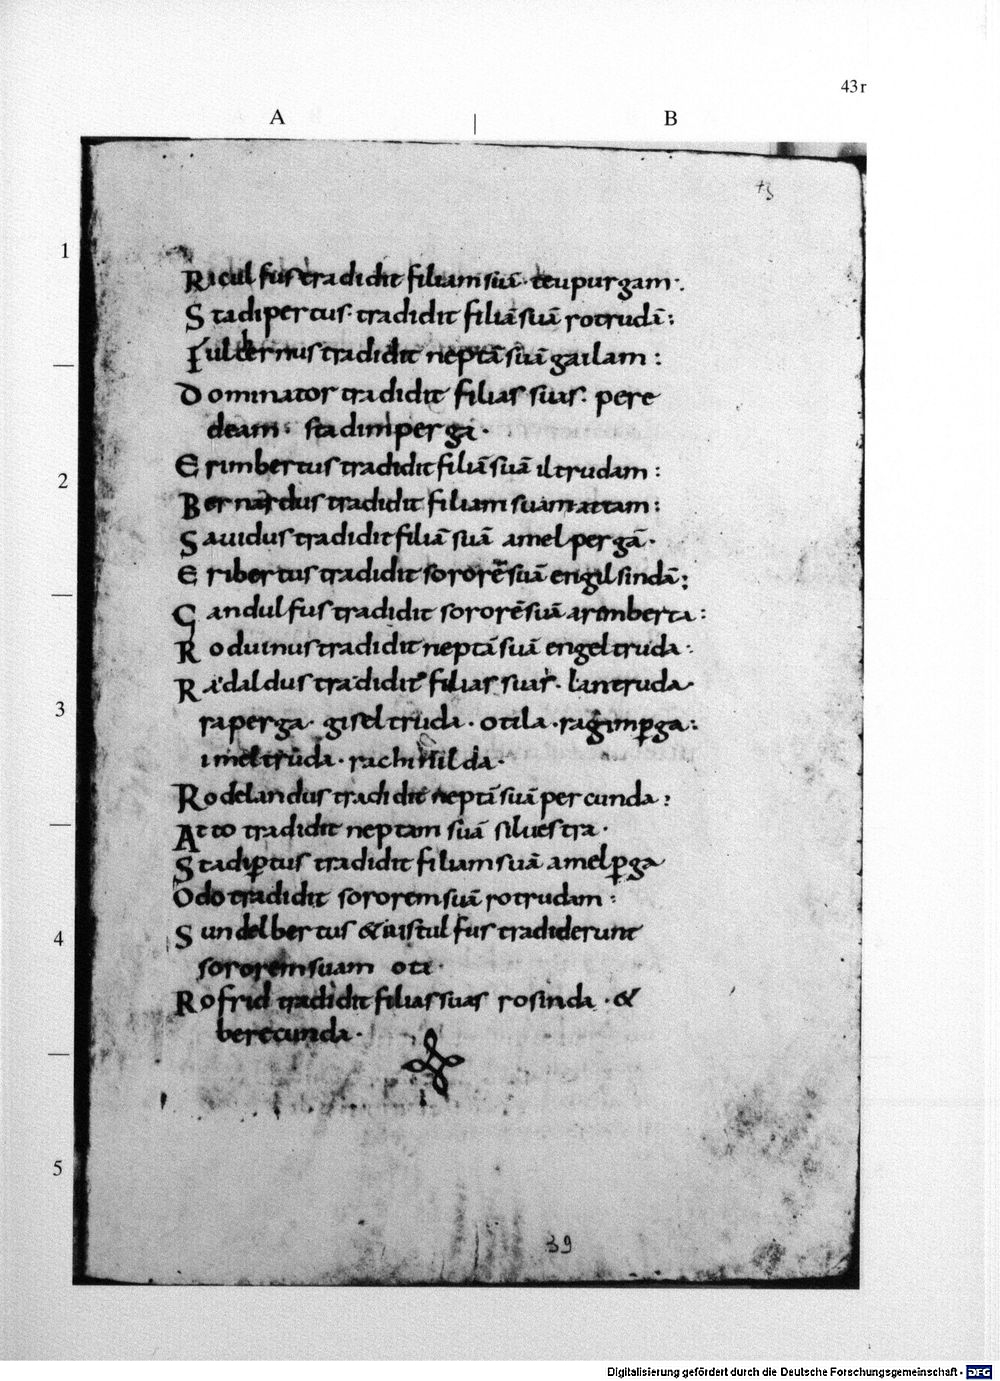 43r
A | B
43
1
Riculfus tradidit filiam suā · teupurgam ·.
Stadipertus · tradidit filiā suā rotrudā :
Fulbernus tradidit neptā suā gailam :
Dominator tradidit filias suas · pere
deam · stadimperga ·
Erimbertus tradidit filiā suā iltrudam :
2
Bernardus tradidit filiam suam attam :
Sauidus tradidit filiā suā amelpergā ·
Eribertus tradidit sororē suā engilsindā :
Gandulfus tradidit sororē suā arimberta :
Roduinus tradidit neptā suā engeltruda ·
Radaldus tradidit filias suas · lantruda ·
3
raperga · giseltruda · otila · ragimꝑga :
imeltruda · rachinilda ·
Rodelandus tradidit neptā suā percunda :
Atto tradidit neptam suā siluestra ·
Stadiꝑtus tradidit filiam suā amelꝑga
Odo tradidit sororem suā rotrudam :
4
Sundelbertus & iustulfus tradiderunt
sororem suam ota ·
Rofrid tradidit filias suas rosinda · &
berecunda ·
5
39
Digitalisierung gefördert durch die Deutsche Forschungsgemeinschaft - DFG